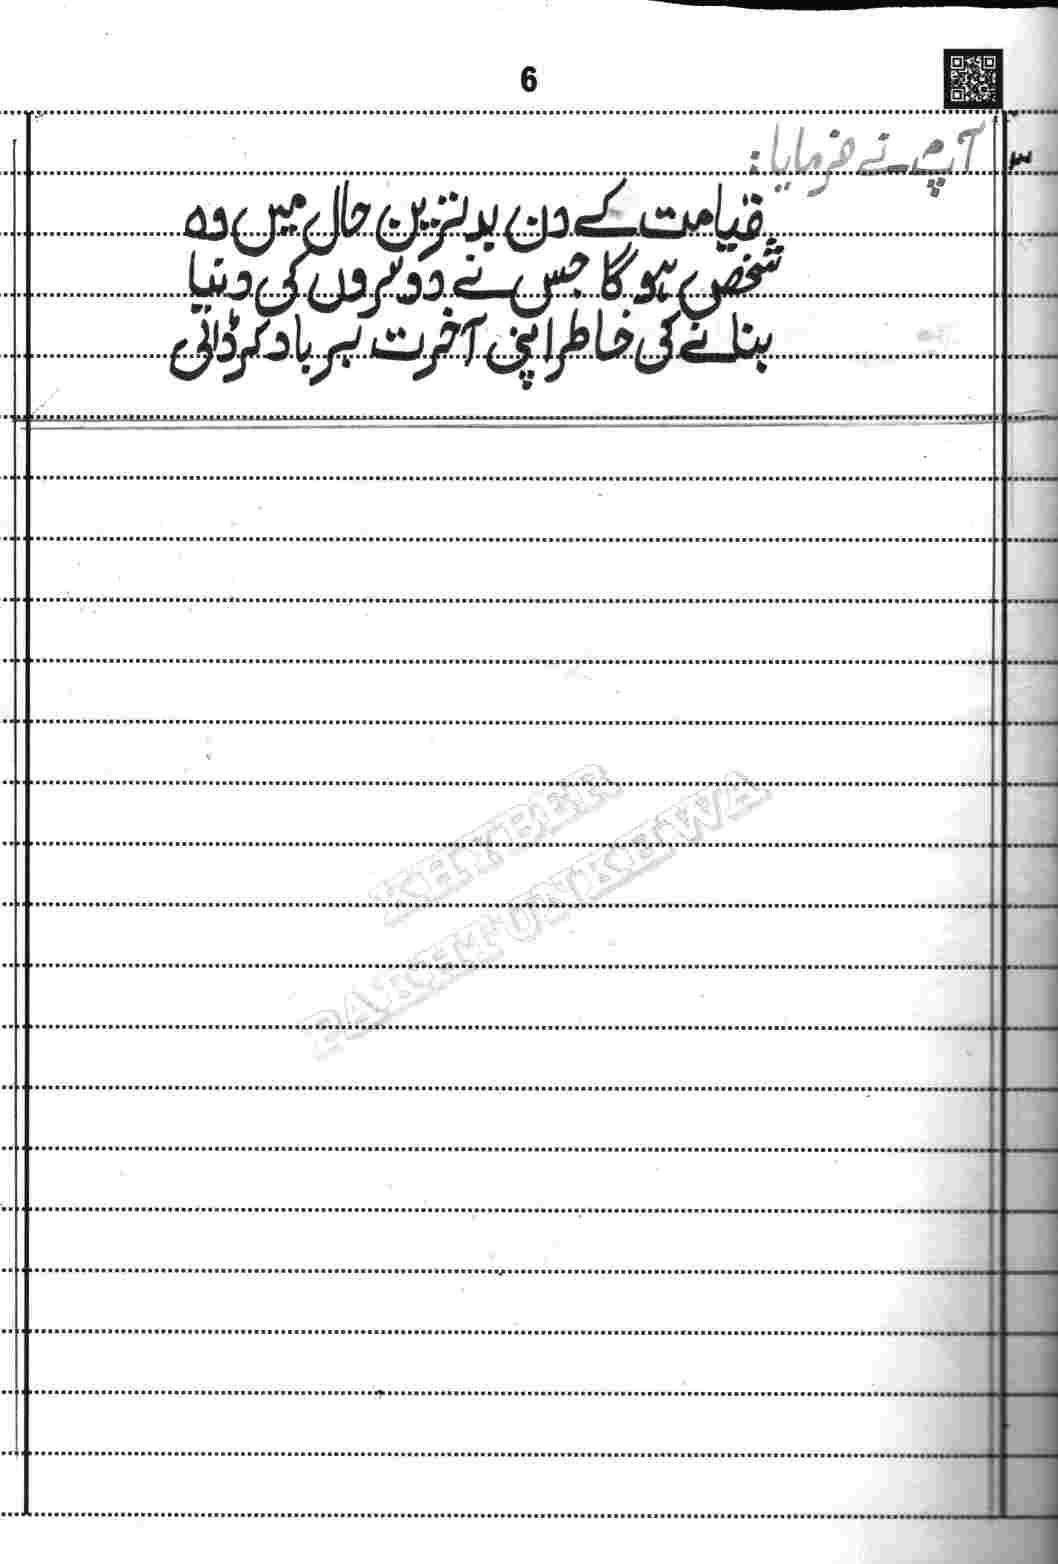 6
آپؐ نے فرمایا:
قیامت کے دن بدترین حال میں وہ
شخص ہو گا جس نے دوسروں کی دنیا
بنانے کی خاطر اپنی آخرت برباد کر ڈالی
KHYBER
PAKHTUNKHWA